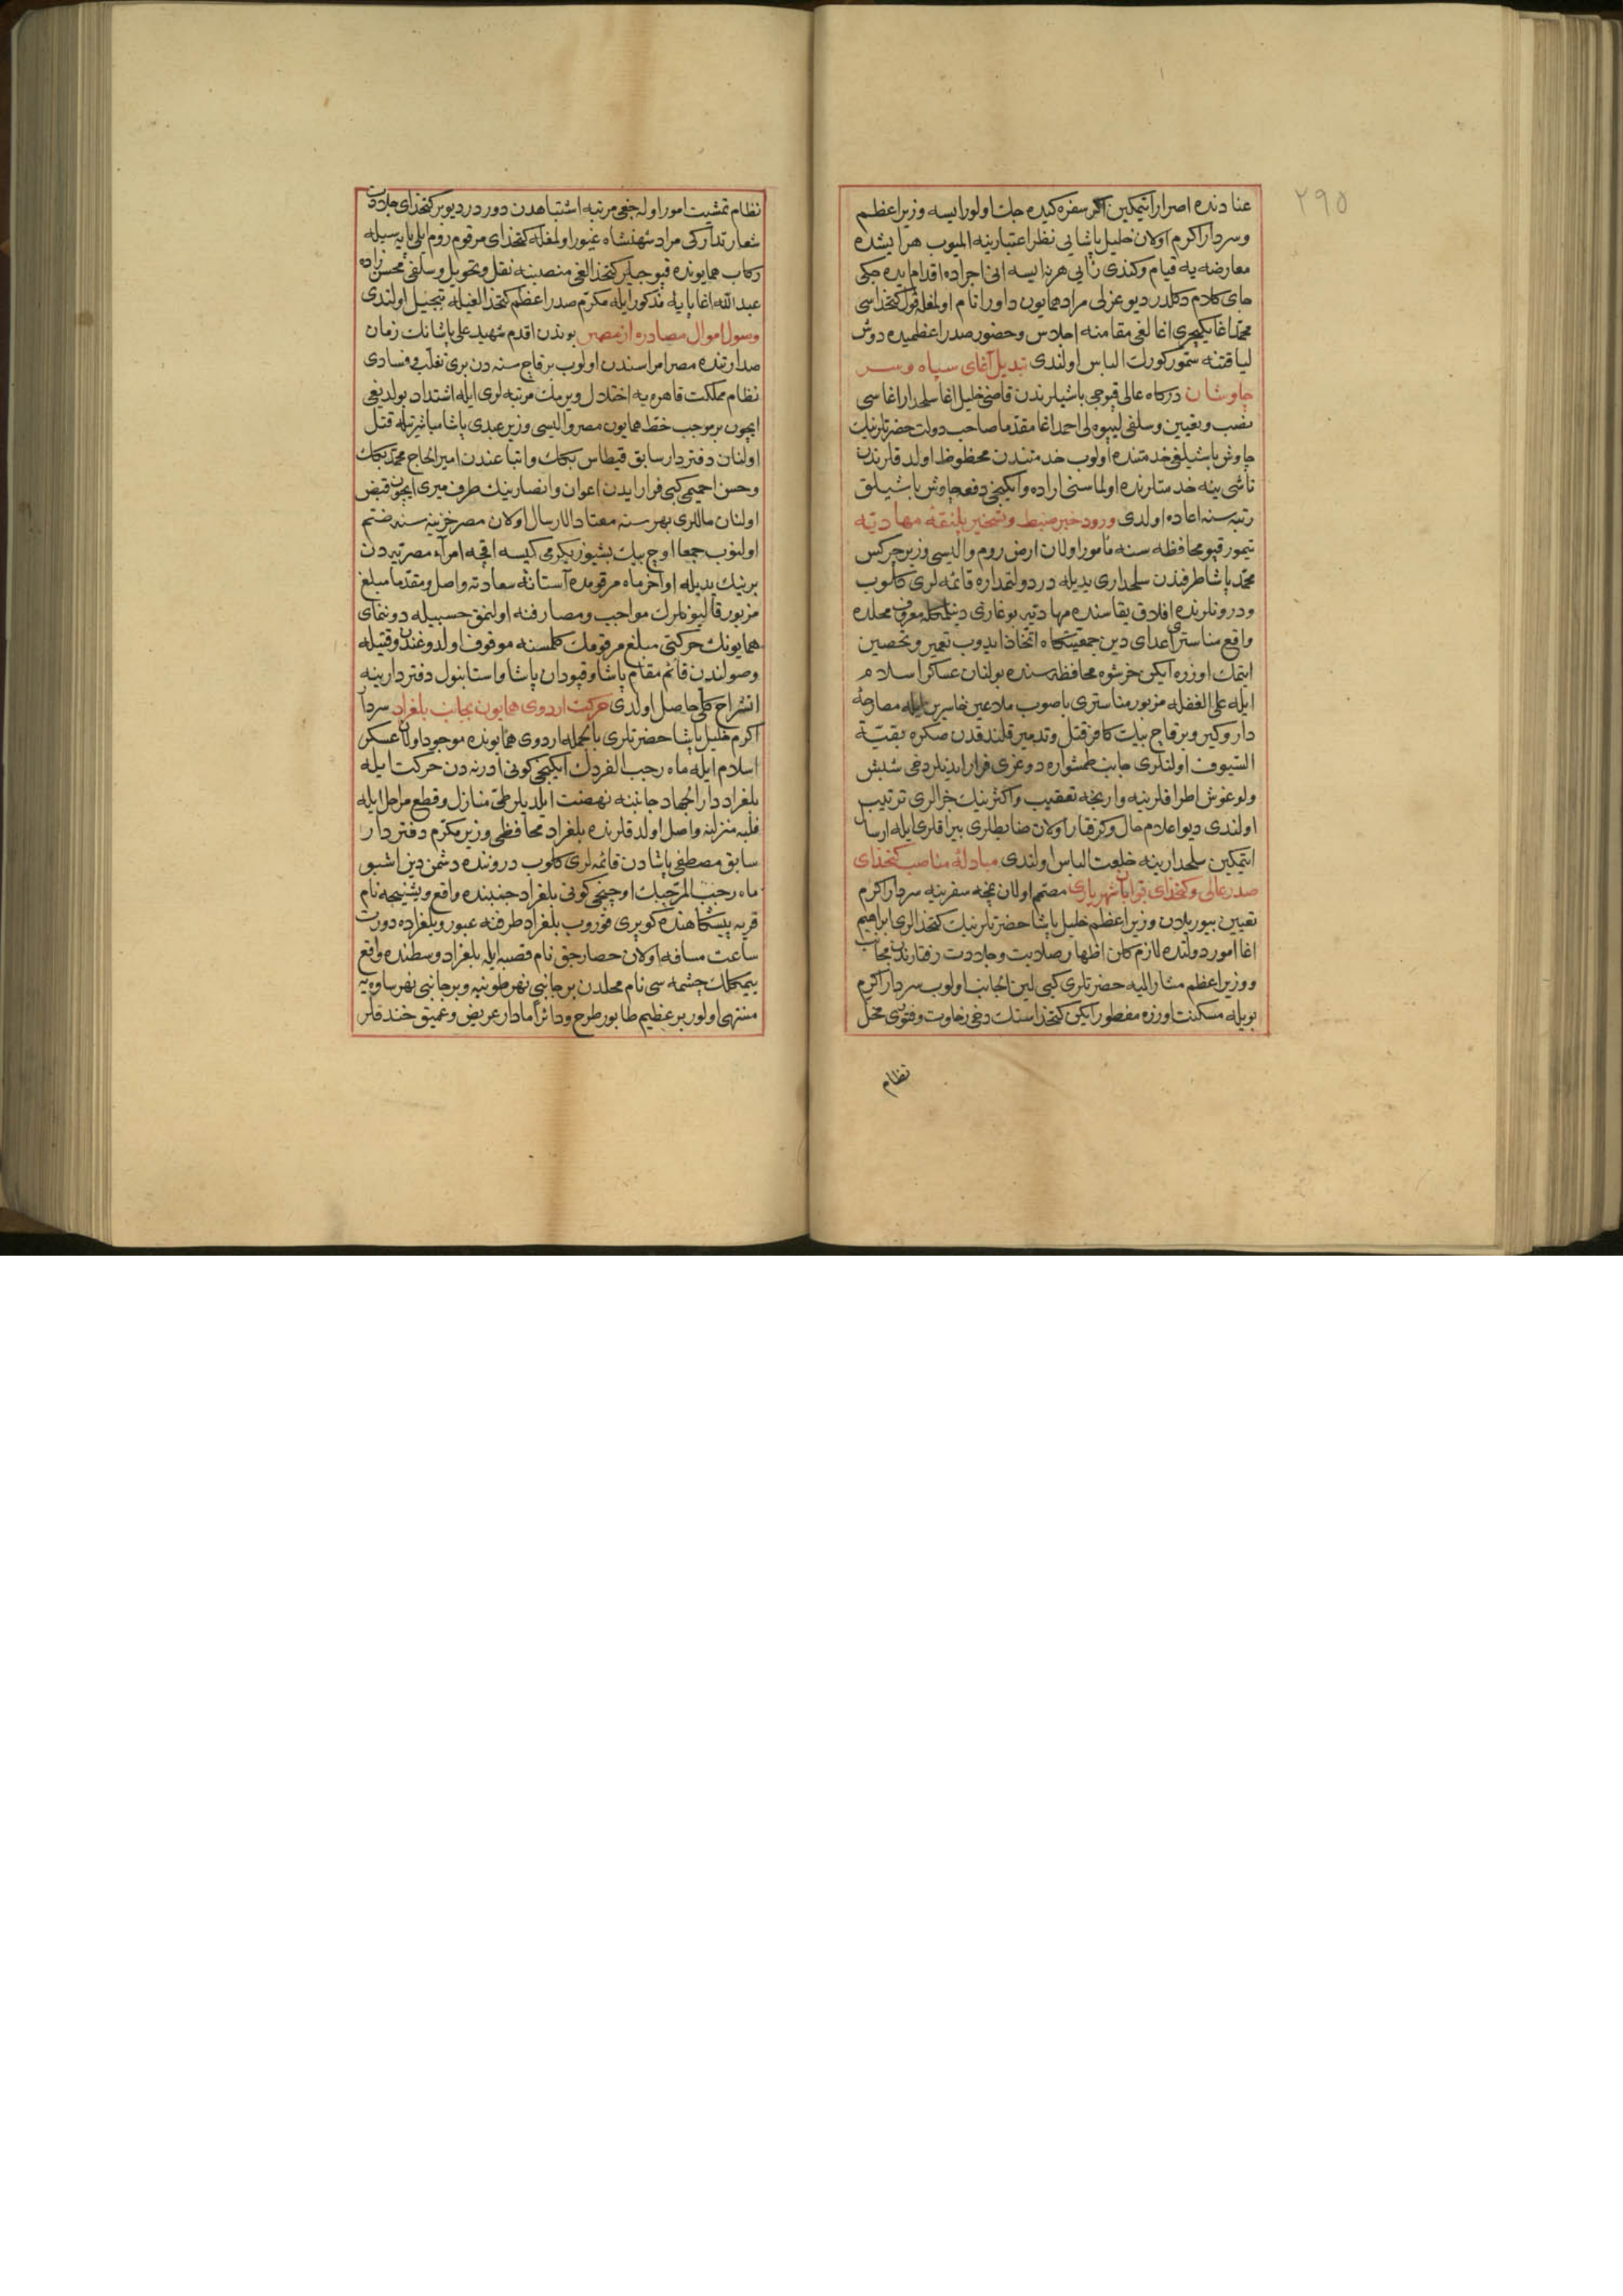 ٢٩٥
عنادنده اصرار ایتمکین اکر سفره کیده جك اولورایسه وزیراعظم
وسردار اکرم اولان خلیل پاشایی نظر اعتبارینه المیوب هر ایشده
معارضه یه قیام وکندی رأیی هر نه ایسه انی اجراده اقدام ایده جکی
جای کلام دکلدر دیو عزلی مراد همایون داور انام اولمغله قول کتخداسی
محمد اغا یکیچری اغالغی مقامنه اجلاس وحضور صدراعظمیده دوش
لیاقتنه سمور کورك الباس اولندی تبدیل آغای سپاه وسر
چاوشان درکاه عالی قپوجی باشیلرندن قاضی خلیل اغا سلحدار اغاسی
نصب وتعیین وسلفی لیپوه لی احمد اغا مقدما صاحب دولت حضرتلرینك
چاوش باشیلغی خدمتنده اولوب خدمتندن محظوظ اولدقلرندن
ناشی ینه خدمتلرنده اولماسنی اراده وایکنجی دفعه چاوش باشیلق
رتبه سنه اعاده اولدی ورود خبر ضبط وتسخیر پلنقهٔ مهادیه
تیمورقپو محافظه سنه مأمور اولان ارض روم والیسی وزیر چرکس
محمد پاشا طرفندن سلحداری یدیله در دولتمداره قائمه لری کلوب
ودرونلرنده افلاق یقاسنده مهادیه بوغازی دینلمکله معروف محلده
واقع مناستری اعدای دین جمعیتکاه اتخاذ ایدوب تعمیر وتحصین
ایتمك اوزره ایکن خرشوه محافظه سنده بولنان عساکر اسلام
ایله علی الغفله مزبور مناستری باصوب ملاعین خاسرین ایله مصارعهٔ
دار وکیر وبرقاچ بیك کافر قتل وتدمیر قلندقدن صکره بقیة
السیوف اولنلری جانب طمشواره دوغری فرار ایدنلر دخی شبش
ولوغوش اطرافلرینه وارنجه تعقیب واکثرینك جزالری ترتیب
اولندی دیو اعلام حال وکرفتار اولان ضابطلری بیراقلری ایله ارسال
ایتمکین سلحدارینه خلعت الباس اولندی مبادلهٔ مناصب کتخدای
صدر عالی وکتخدای بوابان شهریاری مصمم اولان نمچه سفرینه سردار اکرم
تعیین بیوریلان وزیر اعظم خلیل پاشا حضرتلرینك کتخدالری ابراهیم
اغا امور دولتده لازم کلن اظهار صلابت وجلادت رفتارندن مجانب
ووزیر اعظم مشار الیه حضرتلری کبی لین الجانب اولوب سردار اکرم
بویله مسکنت اوزره مفطور ایکن کتخداسنك دخی رخاوت وفتوری مخل
نظام
نظام تمشیت امور اوله جغی مرتبه اشتباهدن دور در دیو بر کتخدای جلادت
شعار تدارکی مراد شهنشاه غیور اولمغله کتخدای مرقوم روم ایلی پایه سیله
رکاب همایونده قپوجیلر کتخدالغی منصبنه نقل وتحویل وسلفی محسن زاده
عبدالله اغا پایهٔ مذکور ایله مکرم صدراعظم کتخدالغیله تبجیل اولندی
وصول اموال مصادره از مصر بوندن اقدم شهید علی پاشانك زمان
صدارتنده مصر امراسندن اولوب برقاچ سنه دن بری تغلب وفسادی
نظام مملکت قاهره یه اختلال ویرمك مرتبه لری ایله اشتداد بولدیغی
ایچون بر موجب خط همایون مصر والیسی وزیر عبدی پاشا مباشرتیله قتل
اولنان دفتردار سابق قیطاس بکك واتباعندن امیر الحاج محمد بکك
وحسن اخمیمی کبی فرار ایدن اعوان وانصارینك طرف میری ایچون قبض
اولنان ماللری بهر سنه معتاد الارسال اولان مصر خزینه سنه ضم
اولنوب جمعا اوچ بیك بشیوز یکرمی کیسه اقچه امرآء مصریه دن
برینك یدیله اواخر ماه مرقومده آستانهٔ سعادته واصل ومقدما مبلغ
مزبور قالیونلرك مواجب ومصارفنه اولنمق حسبیله دوننمای
همایونك حرکتی مبلغ مرقومك کلمسنه موقوف اولدوغندن وقتیله
وصولندن قائم مقام پاشا وقپودان پاشا واستانبول دفتردارینه
انشراح کلی حاصل اولدی حرکت اردوی همایون بجانب بلغراد سردار
اکرم خلیل پاشا حضرتلری بالجمله اردوی همایونده موجود اولان عسکر
اسلام ایله ماه رجب الفردك ایکنجی کونی ادرنه دن حرکت ایله
بلغراد دار الجهاد جانبنه نهضت ایلدیلر طی منازل وقطع مراحل ایله
فلبه منزلینه واصل اولدقلرنده بلغراد محافظی وزیر مکرم دفتردار
سابق مصطفی پاشادن قائمه لری کلوب دروننده دشمن دین اشبو
ماه رجب المرجبك اوچنجی کونی بلغراد جنبنده واقع ویشنیچه نام
قریه پیشکاهنده کوپری قوروب بلغراد طرفنه عبور وبلغراده دورت
ساعت مسافه اولان حصارجق نام قصبه ایله بلغراد وسطنده واقع
چشمه سی نام محلدن بر جانبی نهر طونه یه وبر جانبی نهر ساوه یه
منتهی اولور بر عظیم طابور طرح ودائرا مادار عریض وعمیق خندقلر